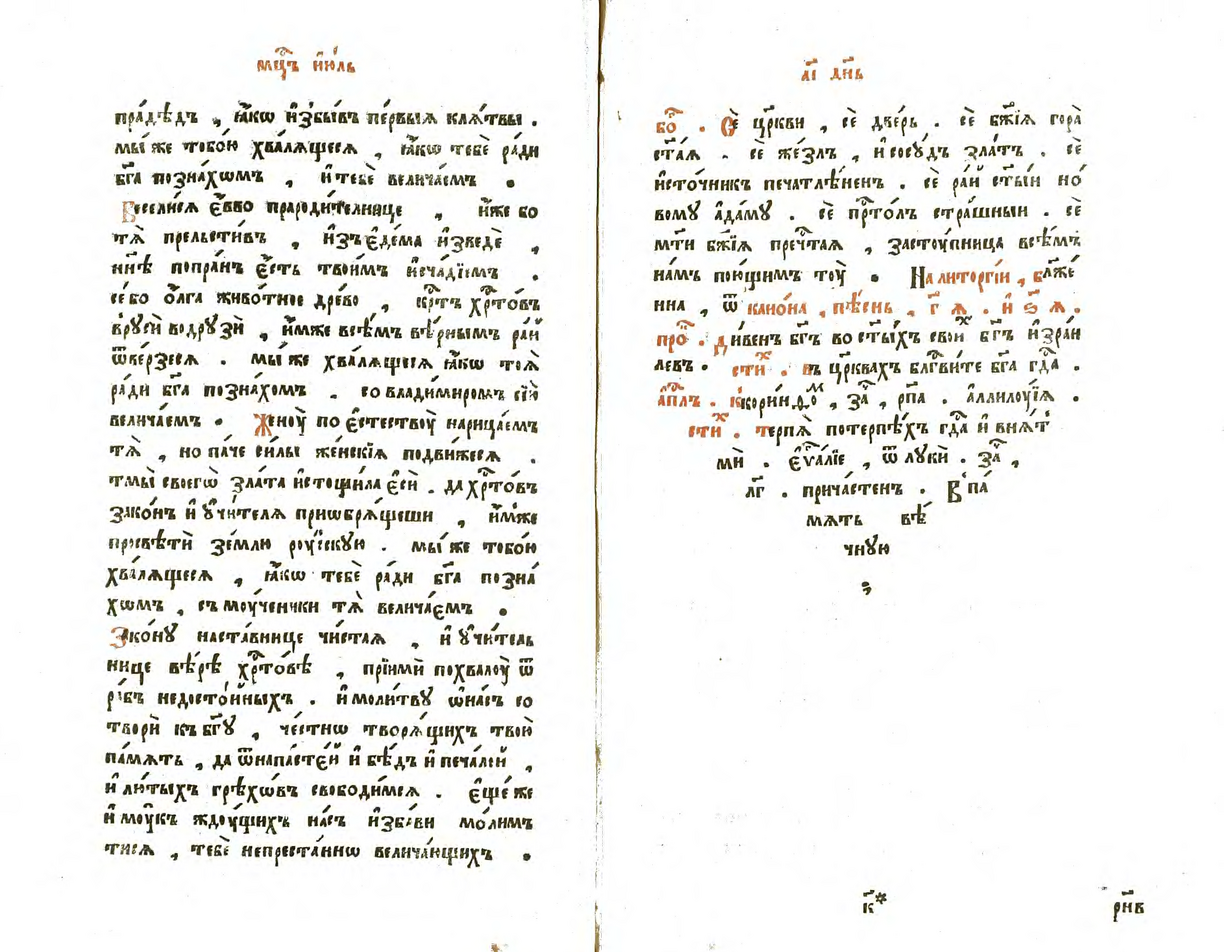 мц҃ъ і҆ю́ль
пра́дѣдъ , ꙗ҆́кѡ и҆збы́въ пе́рвыѧ клѧ́твы .
мы́ же тобо́ю хвалѧ́щесѧ , ꙗ҆́кѡ тебѐ ра́ди
бг҃а позна́хѡмъ , и҆ тебѐ велича́емъ .
Весели́сѧ є҆́вво прароди́телнице , и҆́же бо
тѧ̀ прельсти́въ , и҆зъ є҆де́ма и҆зведѐ ,
нн҃ѣ попра́нъ є҆́сть твои́мъ и҆сча́дїемъ .
се́ бо ѻ҆́лга живо́тное дре́во , крⷭ҇тъ хрⷭ҇то́въ
в руси́ водрузѝ , и҆́мже всѣ́мъ вѣ́рнымъ ра́й
ѿве́рзесѧ . мы́ же хвалѧ́щесѧ ꙗ҆́кѡ тоѧ̀
ра́ди бг҃а позна́хомъ , со владимиромъ сїю̀
велича́емъ . Женꙋ̀ по є҆стествꙋ̀ нарица́емъ
тѧ̀ , но па́че си́лы же́нскїѧ подви́жесѧ .
тмы̀ своегѡ̀ зла́та и҆стощи́ла є҆сѝ . да хрⷭ҇то́въ
зако́нъ и҆ ᲂу҆чи́телѧ приѡбрѧ́щеши , и҆́мже
просвѣтѝ зе́млю рꙋ́сскую . мы́ же тобо́ю
хвалѧ́щесѧ , ꙗ҆́кѡ тебѐ ра́ди бг҃а позна́
хѡмъ , съ моу́ченики тѧ̀ велича́ємъ .
Зако́нꙋ наста́внице чи́стаѧ , и҆ ᲂу҆чи́тель
нице вѣ́рѣ хрⷭ҇то́вѣ , прїимѝ похвалꙋ̀ ѿ
ра́бъ недосто́йныхъ . и҆ моли́твꙋ ѡ҆ на́съ со
творѝ къ бг҃ꙋ , че́стнѡ творѧ́щихъ твою̀
па́мѧть , да ѿ напа́стєй и҆ бѣ́дъ и҆ печа́лей ,
и҆ лю́тыхъ грѣхѡ́въ свободи́мсѧ . є҆ще́ же
и҆ моу́къ ждоу́щихъ на́съ и҆зба́ви мо́лим
тисѧ , тебѐ непреста́ннѡ велича́ющихъ .
а҃і дн҃ь
бо̀ . Сѐ цр҃кви , сѐ две́рь . сѐ бж҃їѧ гора̀
ст҃а́ѧ . сѐ же́злъ , и҆ сосу́дъ зла́тъ . сѐ
и҆сто́чникъ печатлѣ́ненъ . сѐ ра́й ст҃ы́и но́
вомꙋ а҆да́мꙋ . сѐ прⷭ҇то́лъ стра́шныи . сѐ
мт҃и бж҃їѧ преⷱ҇таѧ , застоу́пница всѣ́мъ
на́мъ пою́щимъ тоу̀ . На литоргі́и , бл҃же́
нна , ѿ кано́на , пѣ́снь , г҃ ѧ . и҆ ѕ҃ ѧ .
про̑ . Ди́венъ бг҃ъ во ст҃ы́хъ свои́ⷯ бг҃ъ и҆зраи
левъ . сти́ⷯ . въ цр҃квахъ блг҃ви́те бг҃а гдⷭ҇а .
а҆пⷭ҇лъ . к коринѳоⷨ , за҄ , рп҃а . аллилоуїѧ .
сти́ⷯ . терпѧ̀ потерпѣ́хъ гдⷭ҇а и҆ внѧ́т
мѝ . є҆ѵⷢ҇а́лїе , ѿ лꙋкѝ . за҄ ,
лг҃ . прича́стенъ . В па́
мѧть вѣ́
чнꙋю
к҃* рн҃в